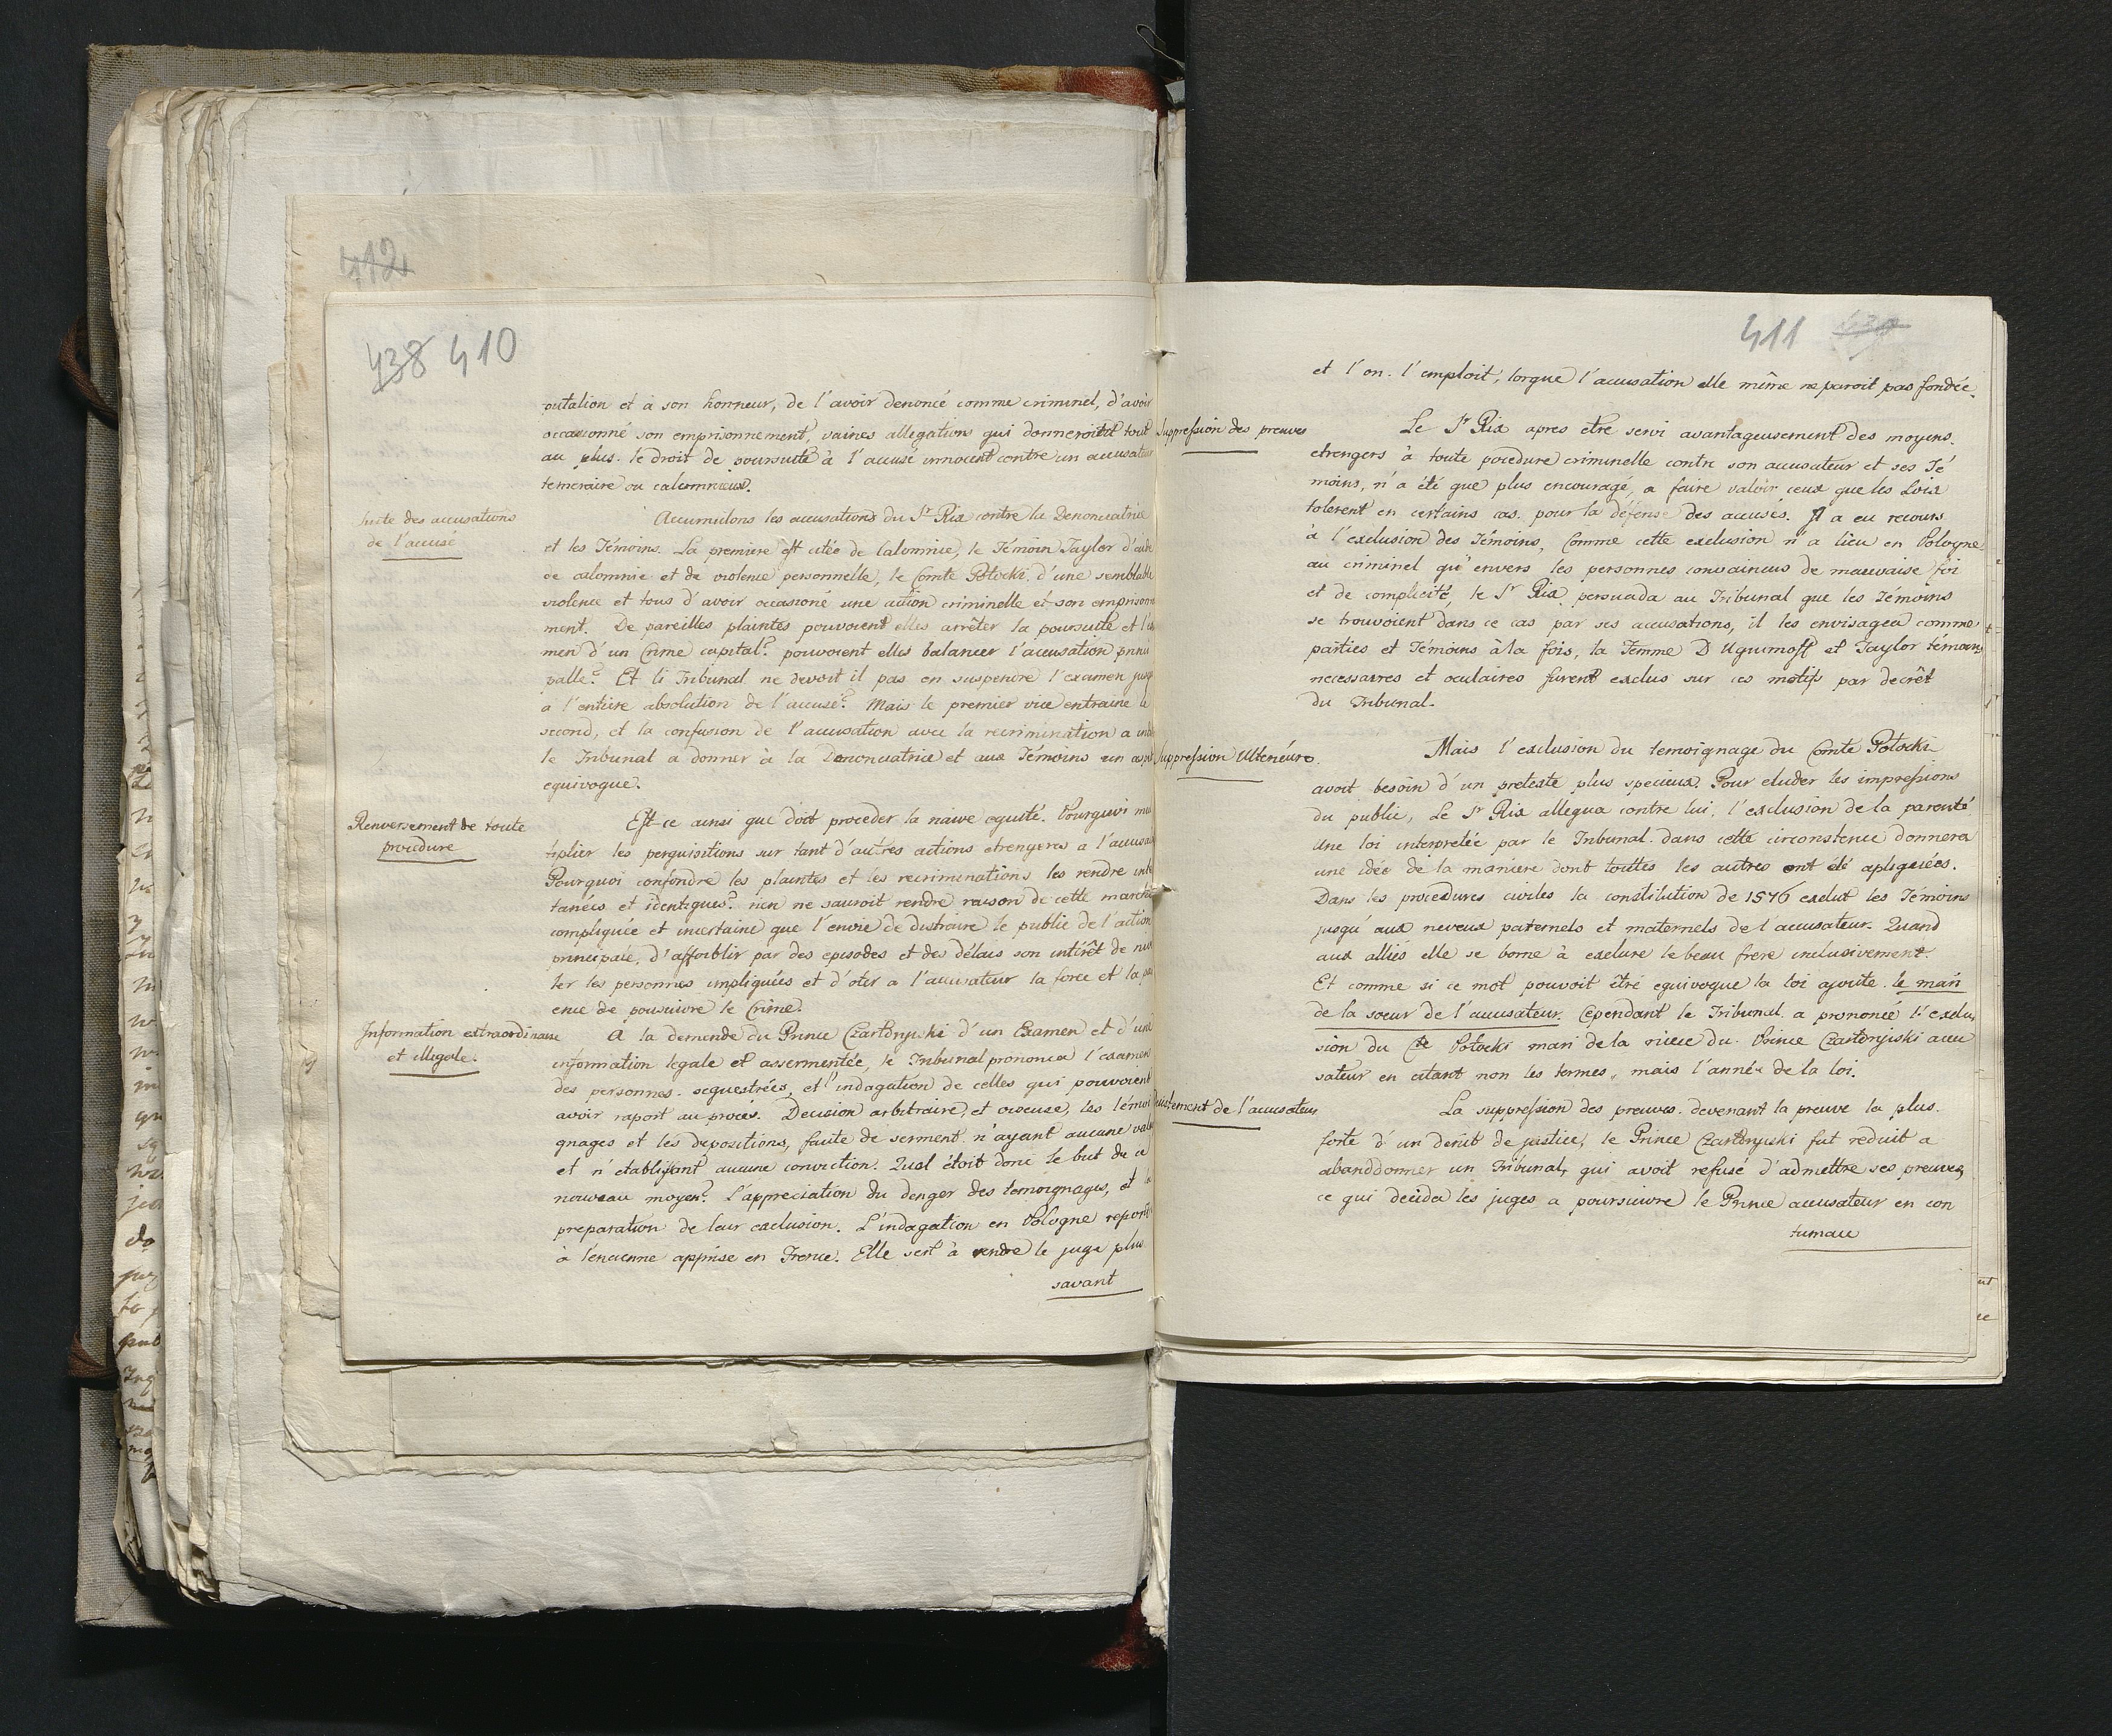 412
438 410
putation et à son honneur, de l'avoir denoncé comme criminel, d'avoir
occasionné son emprisonnement, vaines allegations qui donneroient tout
au plus le droit de poursuite à l'accusé innocent contre un accusateur
temeraire ou calomnieux.
Suite des accusations
de l'accusé
Accumulons les accusations du Sr Rix contre la Denonciatrice
et les Témoins. La premiere est citée de Calomnie, le Témoin Taylor d'aide
de calomnie et de violence personnelle, le Comte Potocki d'une semblable
violence et tous d'avoir occasioné une action criminelle et son emprisonne
ment. De pareilles plaintes pouvoient elles arrêter la poursuite et l'exa
men d'un Crime capital? pouvoient elles balancer l'accusation princi
palle? Et le Tribunal ne devoit il pas en suspendre l'examen jusqu
a l'entiere absolution de l'accusé? Mais le premier vice entraine le
second, et la confusion de l'accusation avec la recrimination a
le Tribunal a donner à la Denonciatrice et aux Témoins un aspect
equivoque.
Renversement de toute
procedure
Est-ce ainsi que doit proceder la naive equité. Pourquoi mul
tiplier les perquisitions sur tant d'autres actions etrangeres a l'accusa
Pourquoi confondre les plaintes et les recriminations les rendre
tanées et identiques? rien ne sauroit rendre raison de cette marche
compliquée et incertaine que l'envie de distraire le public de l'action
principale, d'affoiblir par des episodes et des délais son intérêt de
ter les personnes impliquées et d'oter a l'accusateur la force et la
ence de poursuivre le Crime.
Information extraordinaire
et illegale.
A la demande du Prince Czartoryski d'un Examen et d'une
information legale et assermentée, le Tribunal prononca l'examen
des personnes sequestrées, et l'indagation de celles qui pouvoient
avoir raport au procés. Decision arbitraire, et oiseuse, les témoi
gnages et les depositions, faute de serment n'ayant aucune vale
et n'etablissant aucune conviction. Quel étoit donc le but de ce
nouveau moyen? L'appreciation du danger des temoignages, et la
preparation de leur exclusion. L'indagation en Pologne repond
à l'encienne apprise en France. Elle sert à rendre le juge plus
savant
411 439
et l'on l'emploit, lorque l'accusation elle même ne paroit pas fondée.
Suppression des preuves
Le Sr Rix apres etre servi avantageusement des moyens
etrangers à toute pocedure criminelle contre son accusateur et ses Té
moins, n'a été que plus encouragé, a faire valoir ceux que les Loix
tolerent en certains cas pour la défense des accusés. Il a eu recours
à l'exclusion des Témoins, Comme cette exclusion n'a lieu en Pologne
au criminel qu'envers les personnes convaincus de mauvaise foi
et de complicité, le Sr Rix persuada au Tribunal que les Témoins
se trouvoient dans ce cas par ses accusations, il les envisagea comme
parties et Témoins à la fois, la Femme D'Ugrumoff et Taylor témoins
necessaires et oculaires furent exclus sur ces motifs par decrêt
du Tribunal.
Suppression Ulterieure.
Mais l'exclusion du temoignage du Comte Potocki
avoit besoin d'un pretexte plus specieux. Pour eluder les impressions
du public, Le Sr Rix allegua contre lui, l'exclusion de la parenté
une loi interpretée par le Tribunal dans cette circonstence donnera
une idée de la maniere dont touttes les autres ont été apliquées.
Dans les procedures civiles la constitution de 1576 exclut les Témoins
jusqu'aux neveux paternels et maternels de l'accusateur. Quand
aux alliés elle se borne à exclure le beau frere inclusivement.
Et comme si ce mot pouvoit être equivoque la loi ajoute le mari
de la soeur de l'accusateur. Cependant le Tribunal a prononcé l'exclu
sion du Cte Potocki mari de la niece du Prince Czartoryiski accu
sateur en citant non les termes, mais l'année de la loi.
Desistement de l'accusateur
La suppression des preuves devenant la preuve la plus
forte d'un deni de justice, le Prince Czartoryiski fut reduit a
abanddonner un Tribunal, qui avoit refusé d'admettre ses preuves,
ce qui decida les juges a poursuivre le Prince accusateur en con
tumace